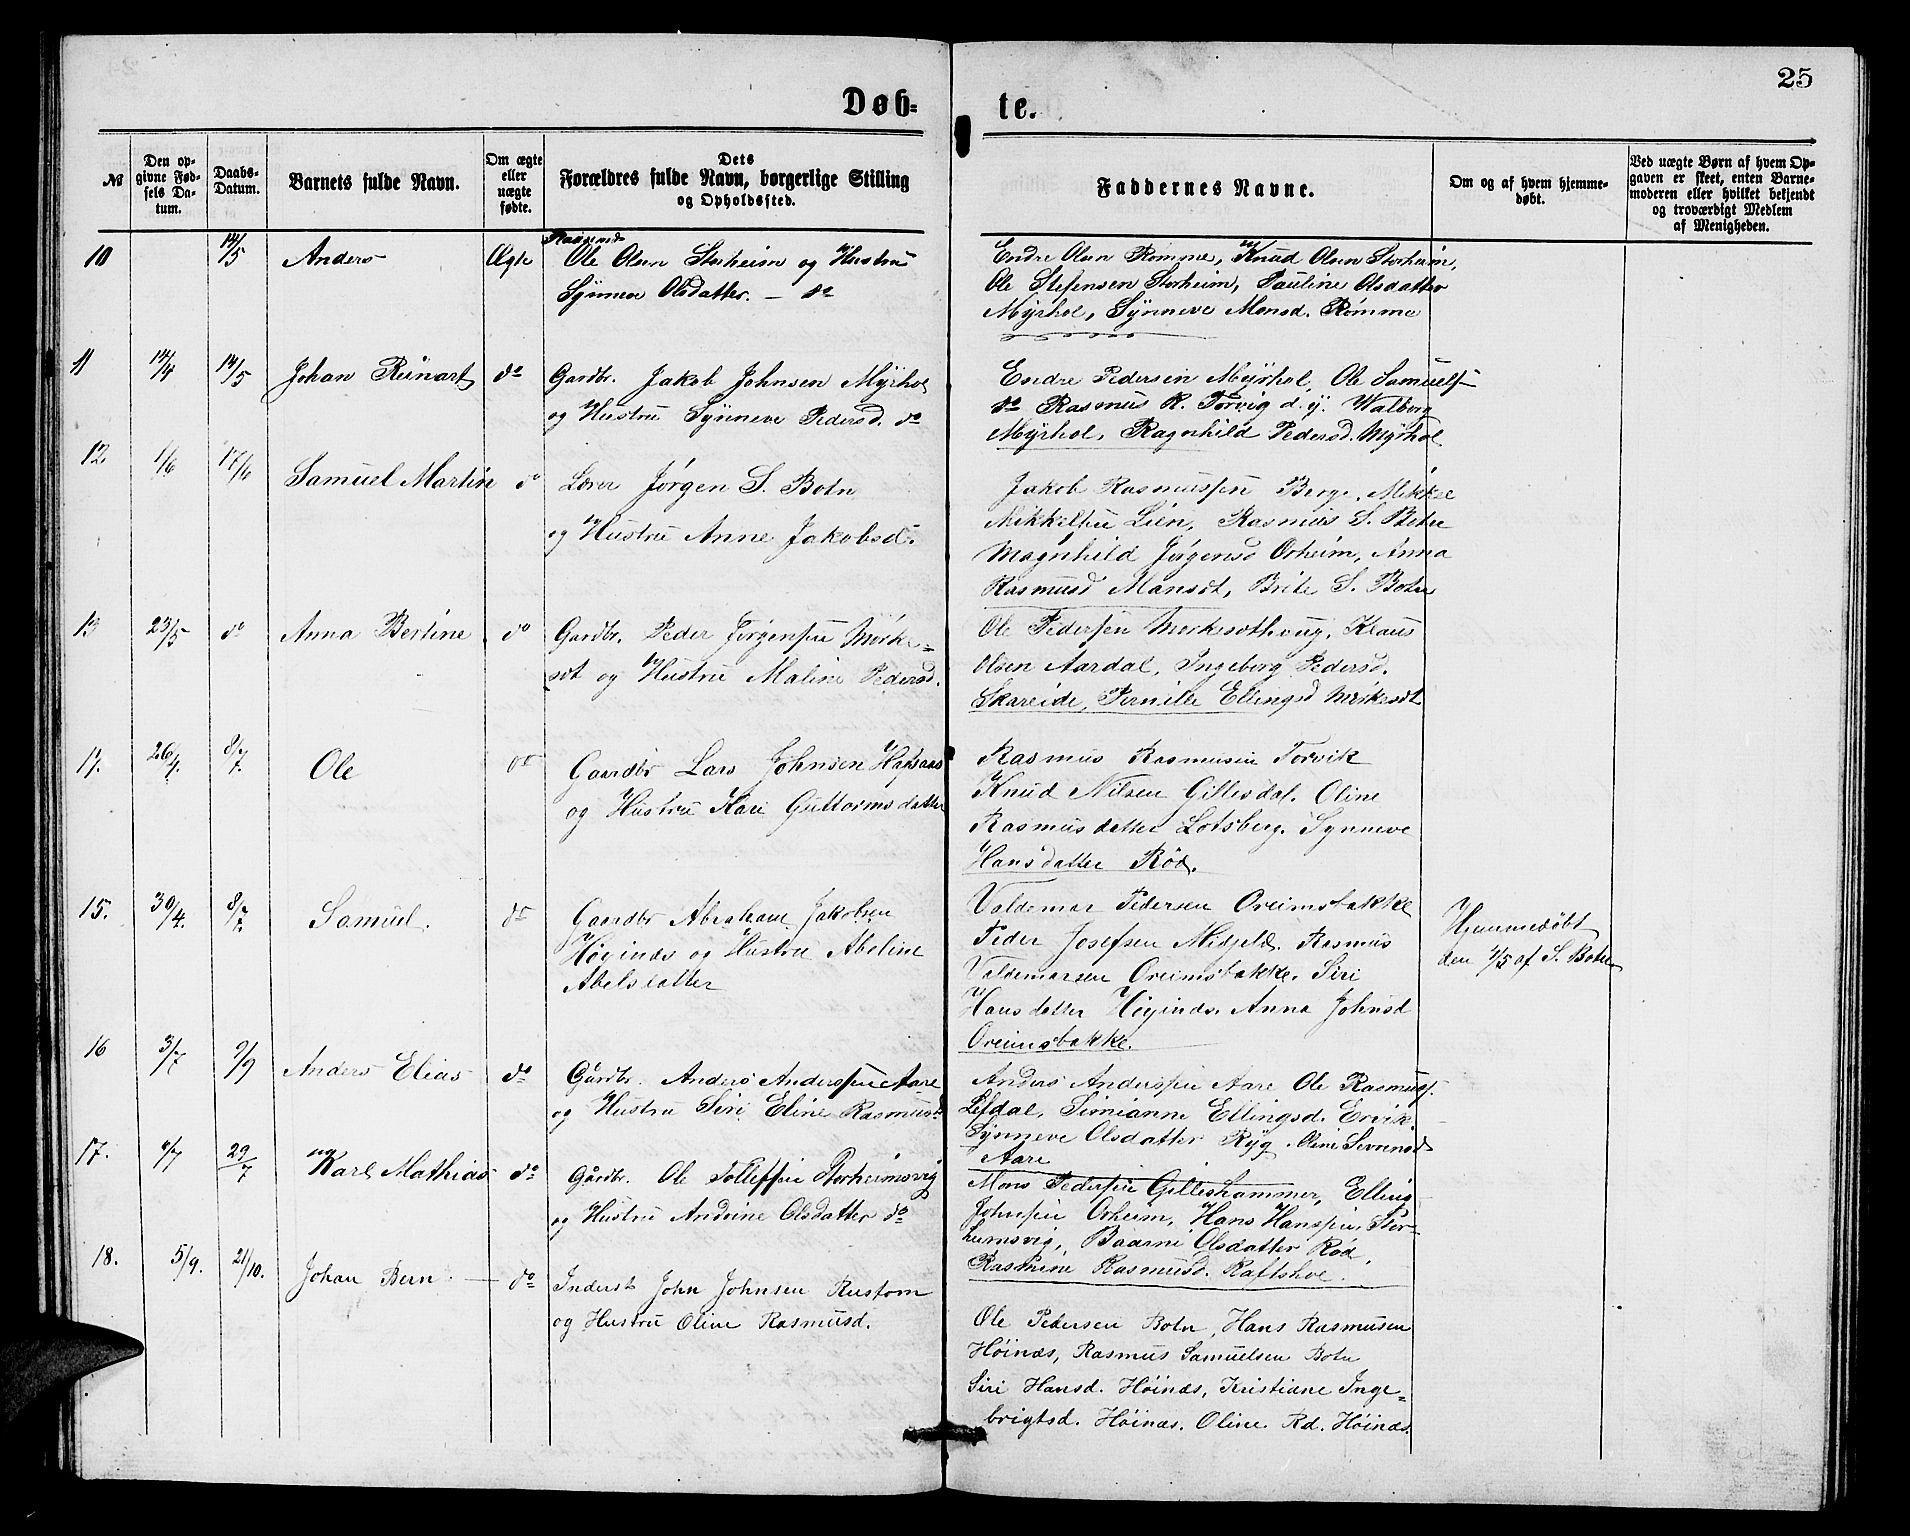 25
Døb-
te.
№
Den opgivne Fødsels Datum.
Daabs-Datum.
Barnets fulde Navn.
Om ægte eller uægte fødte.
Dets Forældres fulde Navn, borgerlige Stilling og Opholdssted.
Faddernes Navne.
Om og af hvem hjemmedøbt.
Ved uægte Børn af hvem Opgaven er skeet, enten Barnemoderen eller hvilket bekjendt og troværdigt Medlem af Menigheden.
10 14/5 Anders Ægte
Ole Olsen Storheim og Hustru
Synneve Olsdatter. — do
Endre Olsen Rømme, Knud Olsen Storheim,
Ole Stefensen Storheim, Pauline Olsdatter
Myrhol, Synneve Monsd. Rømme
11 14/4 14/5 Johan Reinart do
Gardbr. Jakob Johnsen Myrhol
og Hustru Synneve Pedersd. do
Endre Pedersen Myrhol, Ole Samuels-
do Rasmus R. Torvig d. y. Walborg
Myrhol, Ragnhild Pedersd. Myrhol.
12. 1/6 17/6 Samuel Martin do
Lærer Jørgen S. Botn
og Hustru Anne Jakobsd.
Jakob Rasmussen Berge, Mikkel
Mikkelsen Lien, Rasmus S. Botn
Magnhild Jørgensd Orheim, Anna
Rasmusd Mansøt, Brite S. Botn
13 23/5 do Anna Bertine do
Gardbr. Peder Jørgensen Mørke-
søt og Hustru Maline Pedersd.
Ole Pedersen Mørkesøthoug, Klaus
Olsen Aardal, Ingeborg Pedersd.
Skareide, Pernille Ellingsd Mørkesøt
14. 26/4. 8/7. Ole do
Gaardbr Lars Johnsen Hafsaas
og Hustru Kari Guttormsdatter
Rasmus Rasmusen Torvik
Knud Nilsen Gillesdal. Oline
Rasmusdatter Lotsberg. Synneve
Hansdatter Rød.
15. 30/4. 8/7. Samuel. do
Gaardbr Abraham Jakobsen
Høginds og Hustru Abeline
Abelsdatter
Valdemar Pedersen Oreimsbakke
Peder Josefsen Midjeld. Rasmus
Valdemarsen Oreimsbakke. Siri
Hansdatter Høginds. Anna Johnsd
Oreimsbakke.
Hjemmedøbt
den 4/5 af S. Botn
16 3/7 9/9 Anders Elias do
Gårdbr. Anders Andersen Aare
og Hustru Siri Eline Rasmusd.
Anders Andersen Aare Ole Rasmuss.
Lefdal, Simianne Ellingsd. Ervik
Synneve Olsdatter Ryg. Oline Severinsd
Aare
17. 4/7 29/7 Karl Mathias do
Gårdbr. Ole Tollefsen Storheimsvig
og Hustru Andrine Olsdatter do
Mons Pedersen Gilleshammer, Elling
Johnsen Orheim, Hans Hansen Stor-
heimsvig, Baarni Olsdatter Rød,
Rasmine Rasmusd. Raftshol.
18. 5/9. 21/10. Johan Bern. — do
Inderst John Johnsen Rustom
og Hustru Oline Rasmusd.
Ole Pedersen Botn, Hans Rasmusen
Høinæs, Rasmus Samuelsen Botn
Siri Hansd. Høinæs, Kristiane Inge-
brigtsd. Høinæs. Oline Rd. Høinæs.